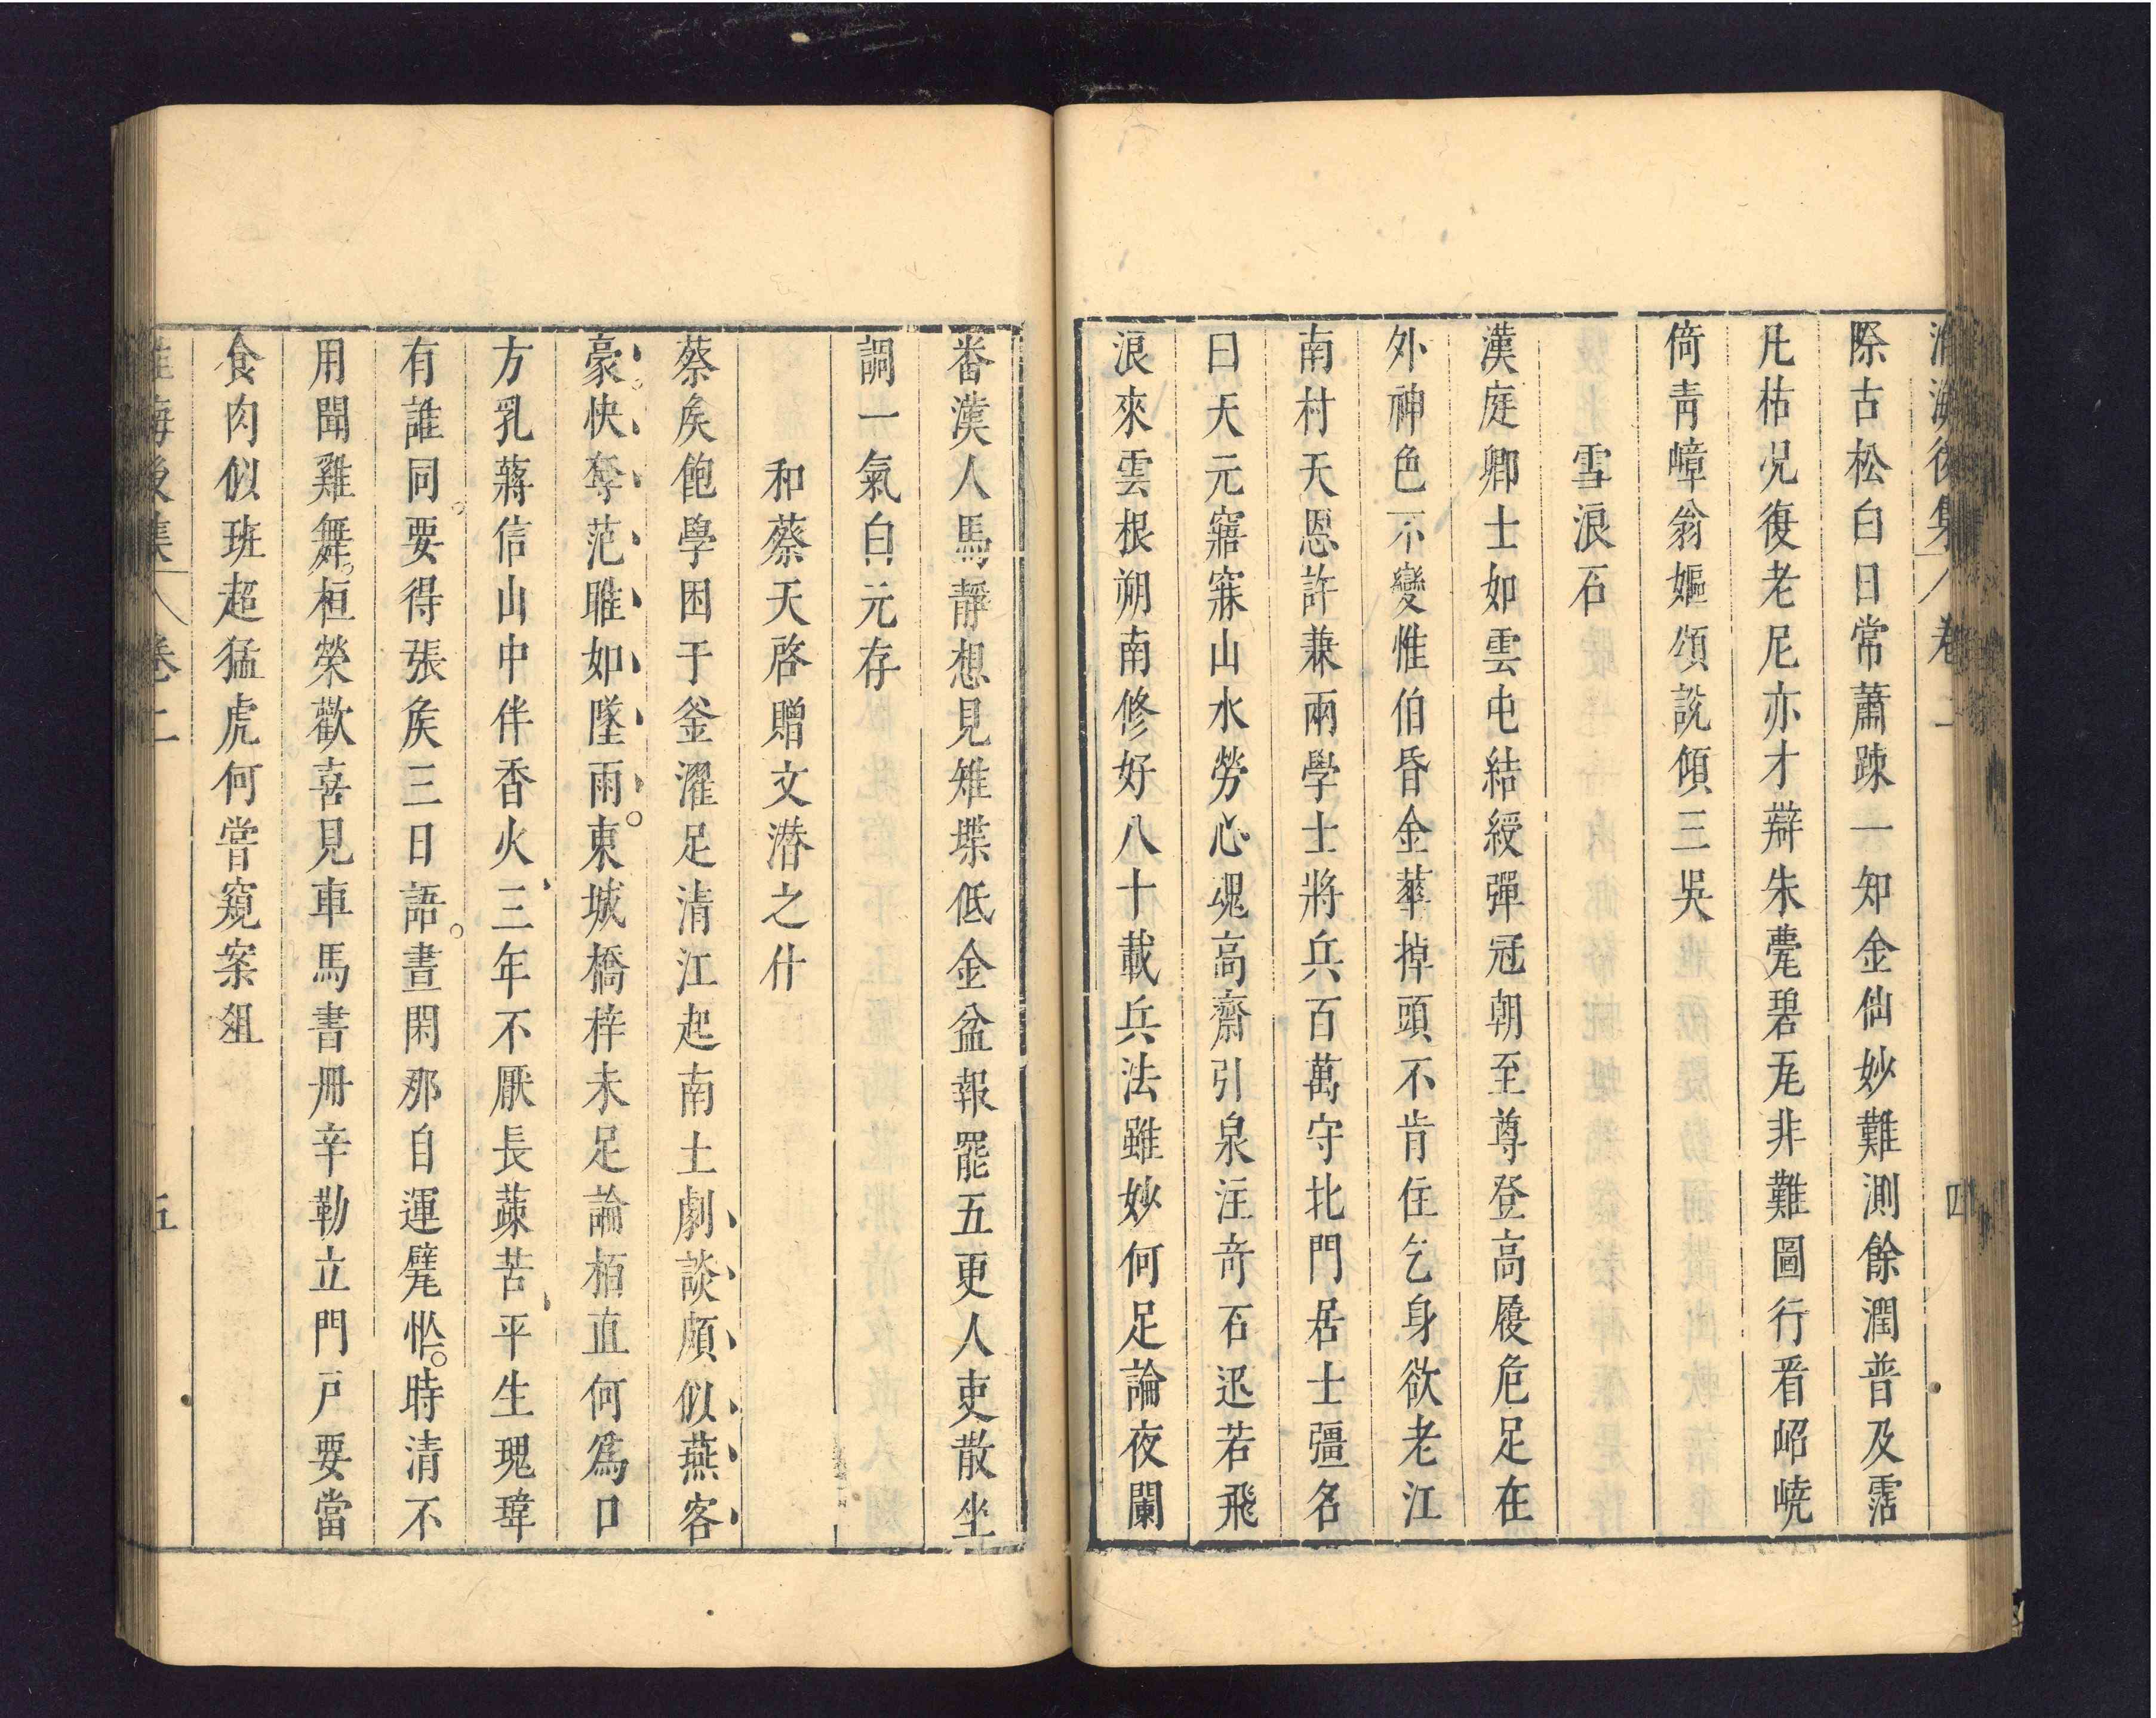 淮海後集 卷二 四
際古松白日常蕭踈一知金仙妙難測餘潤普及霑
凡枯况復老尼亦才辯朱甍碧瓦非難圖行看岧嶢
倚青嶂翁嫗頌說傾三吳
雪浪石
漢庭卿士如雲屯結綬彈冠朝至尊登高履危足在
外神色不變惟伯昏金華掉頭不肯住乞身欲老江
南村天恩許兼兩學士將兵百萬守北門居士彊名
曰天元寤寐山水勞心魂高齋引泉注奇石迅若飛
浪來雲根朔南修好八十載兵法雖妙何足論夜闌
番漢人馬靜想見雉堞低金盆報罷五更人吏散坐
調一氣白元存
和蔡天啓贈文潜之什
蔡矦飽學困于釜濯足清江起南土劇談頗似燕客
豪快奪范睢如墜雨東城橋梓未足論栢直何爲口
方乳蔣信山中伴香火三年不厭長蔬苦平生瑰瑋
有誰同要得張矦三日語晝閑那自運甓忙時清不
用聞雞舞桓榮歡喜見車馬書冊辛勒立門戸要當
食肉似班超猛虎何嘗窺案俎
淮海後集 卷二 五